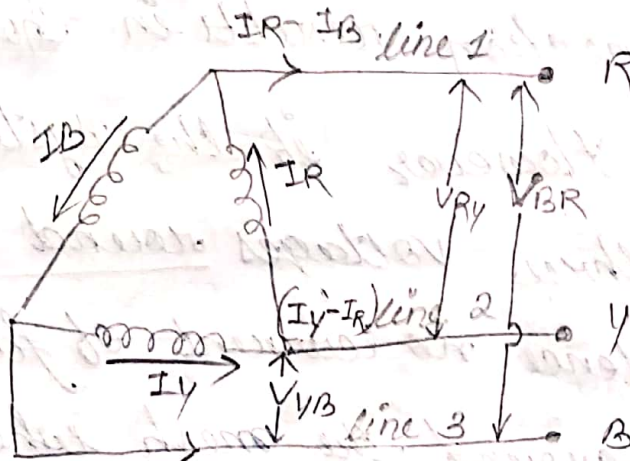 IR-IB line 1 R
IB
IR
VRY VBR
(IY-IR) line 2 Y
IY
VYB
line 3 B